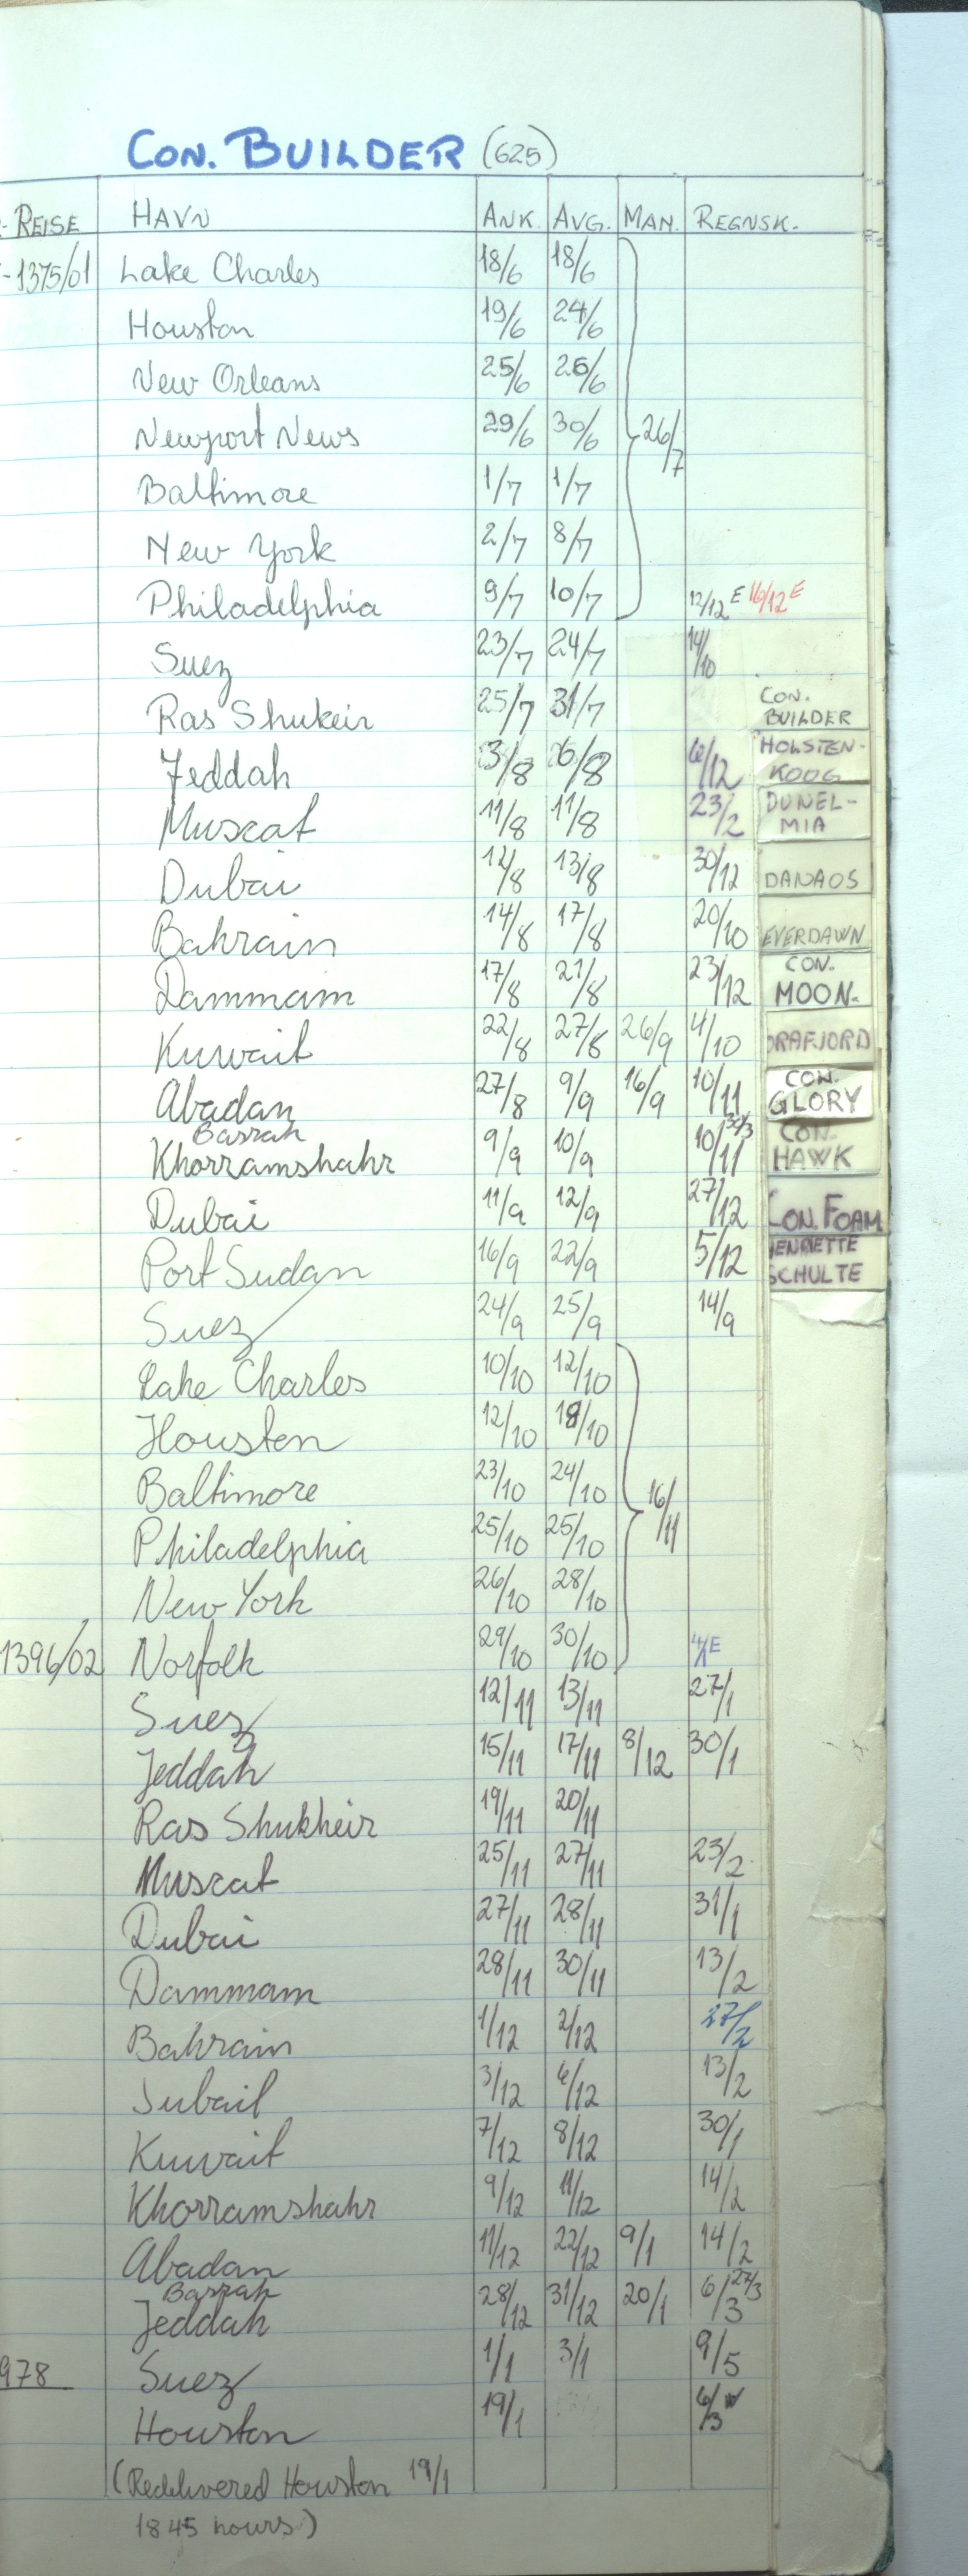 CON. BUILDER (625)
REISE HAVN ANK. AVG. MAN. REGNSK.
-1375/01 Lake Charles 18/6 18/6
Houston 19/6 24/6
New Orleans 25/6 26/6
Newport News 29/6 30/6 26/7
Baltimore 1/7 1/7
New York 2/7 8/7
Philadelphia 9/7 10/7 12/12 E 16/12 E
Suez 23/7 24/7 14/10
Ras Shukeir 25/7 31/7
CON. BUILDER
Jeddah 3/8 6/8 6/12
HOLSTEN-KOOG
Muscat 11/8 11/8 23/2
DUNEL-MIA
Dubai 12/8 13/8 30/12 DANAOS
Bahrain 14/8 17/8 20/10 EVERDAWN
Dammam 17/8 21/8 23/12 CON. MOON.
Kuwait 22/8 27/8 26/9 4/10 DRAFJORD
Abadan 27/8 9/9 16/9 10/11 CON. GLORY
Basrah
Khorramshahr 9/9 10/9 10/11 CON. HAWK
Dubai 11/9 12/9 27/12 CON. FOAM
Port Sudan 16/9 22/9 5/12 HENRIETTE SCHULTE
Suez 24/9 25/9 14/9
Lake Charles 10/10 12/10
Houston 12/10 18/10
Baltimore 23/10 24/10 16/11
Philadelphia 25/10 25/10
New York 26/10 28/10
1396/02 Norfolk 29/10 30/10 4/1 E
Suez 12/11 13/11 27/1
Jeddah 15/11 17/11 8/12 30/1
Ras Shukheir 19/11 20/11
Muscat 25/11 27/11 23/2
Dubai 27/11 28/11 31/1
Dammam 28/11 30/11 13/2
Bahrain 1/12 2/12 27/2
Jubail 3/12 6/12 13/2
Kuwait 7/12 8/12 30/1
Khorramshahr 9/12 11/12 14/2
Abadan 11/12 22/12 9/1 14/2
Basrah
Jeddah 28/12 31/12 20/1 6/3 27/3
978 Suez 1/1 3/1 9/5
Houston 19/1 6/3
(Redelivered Houston 19/1
1845 hours)